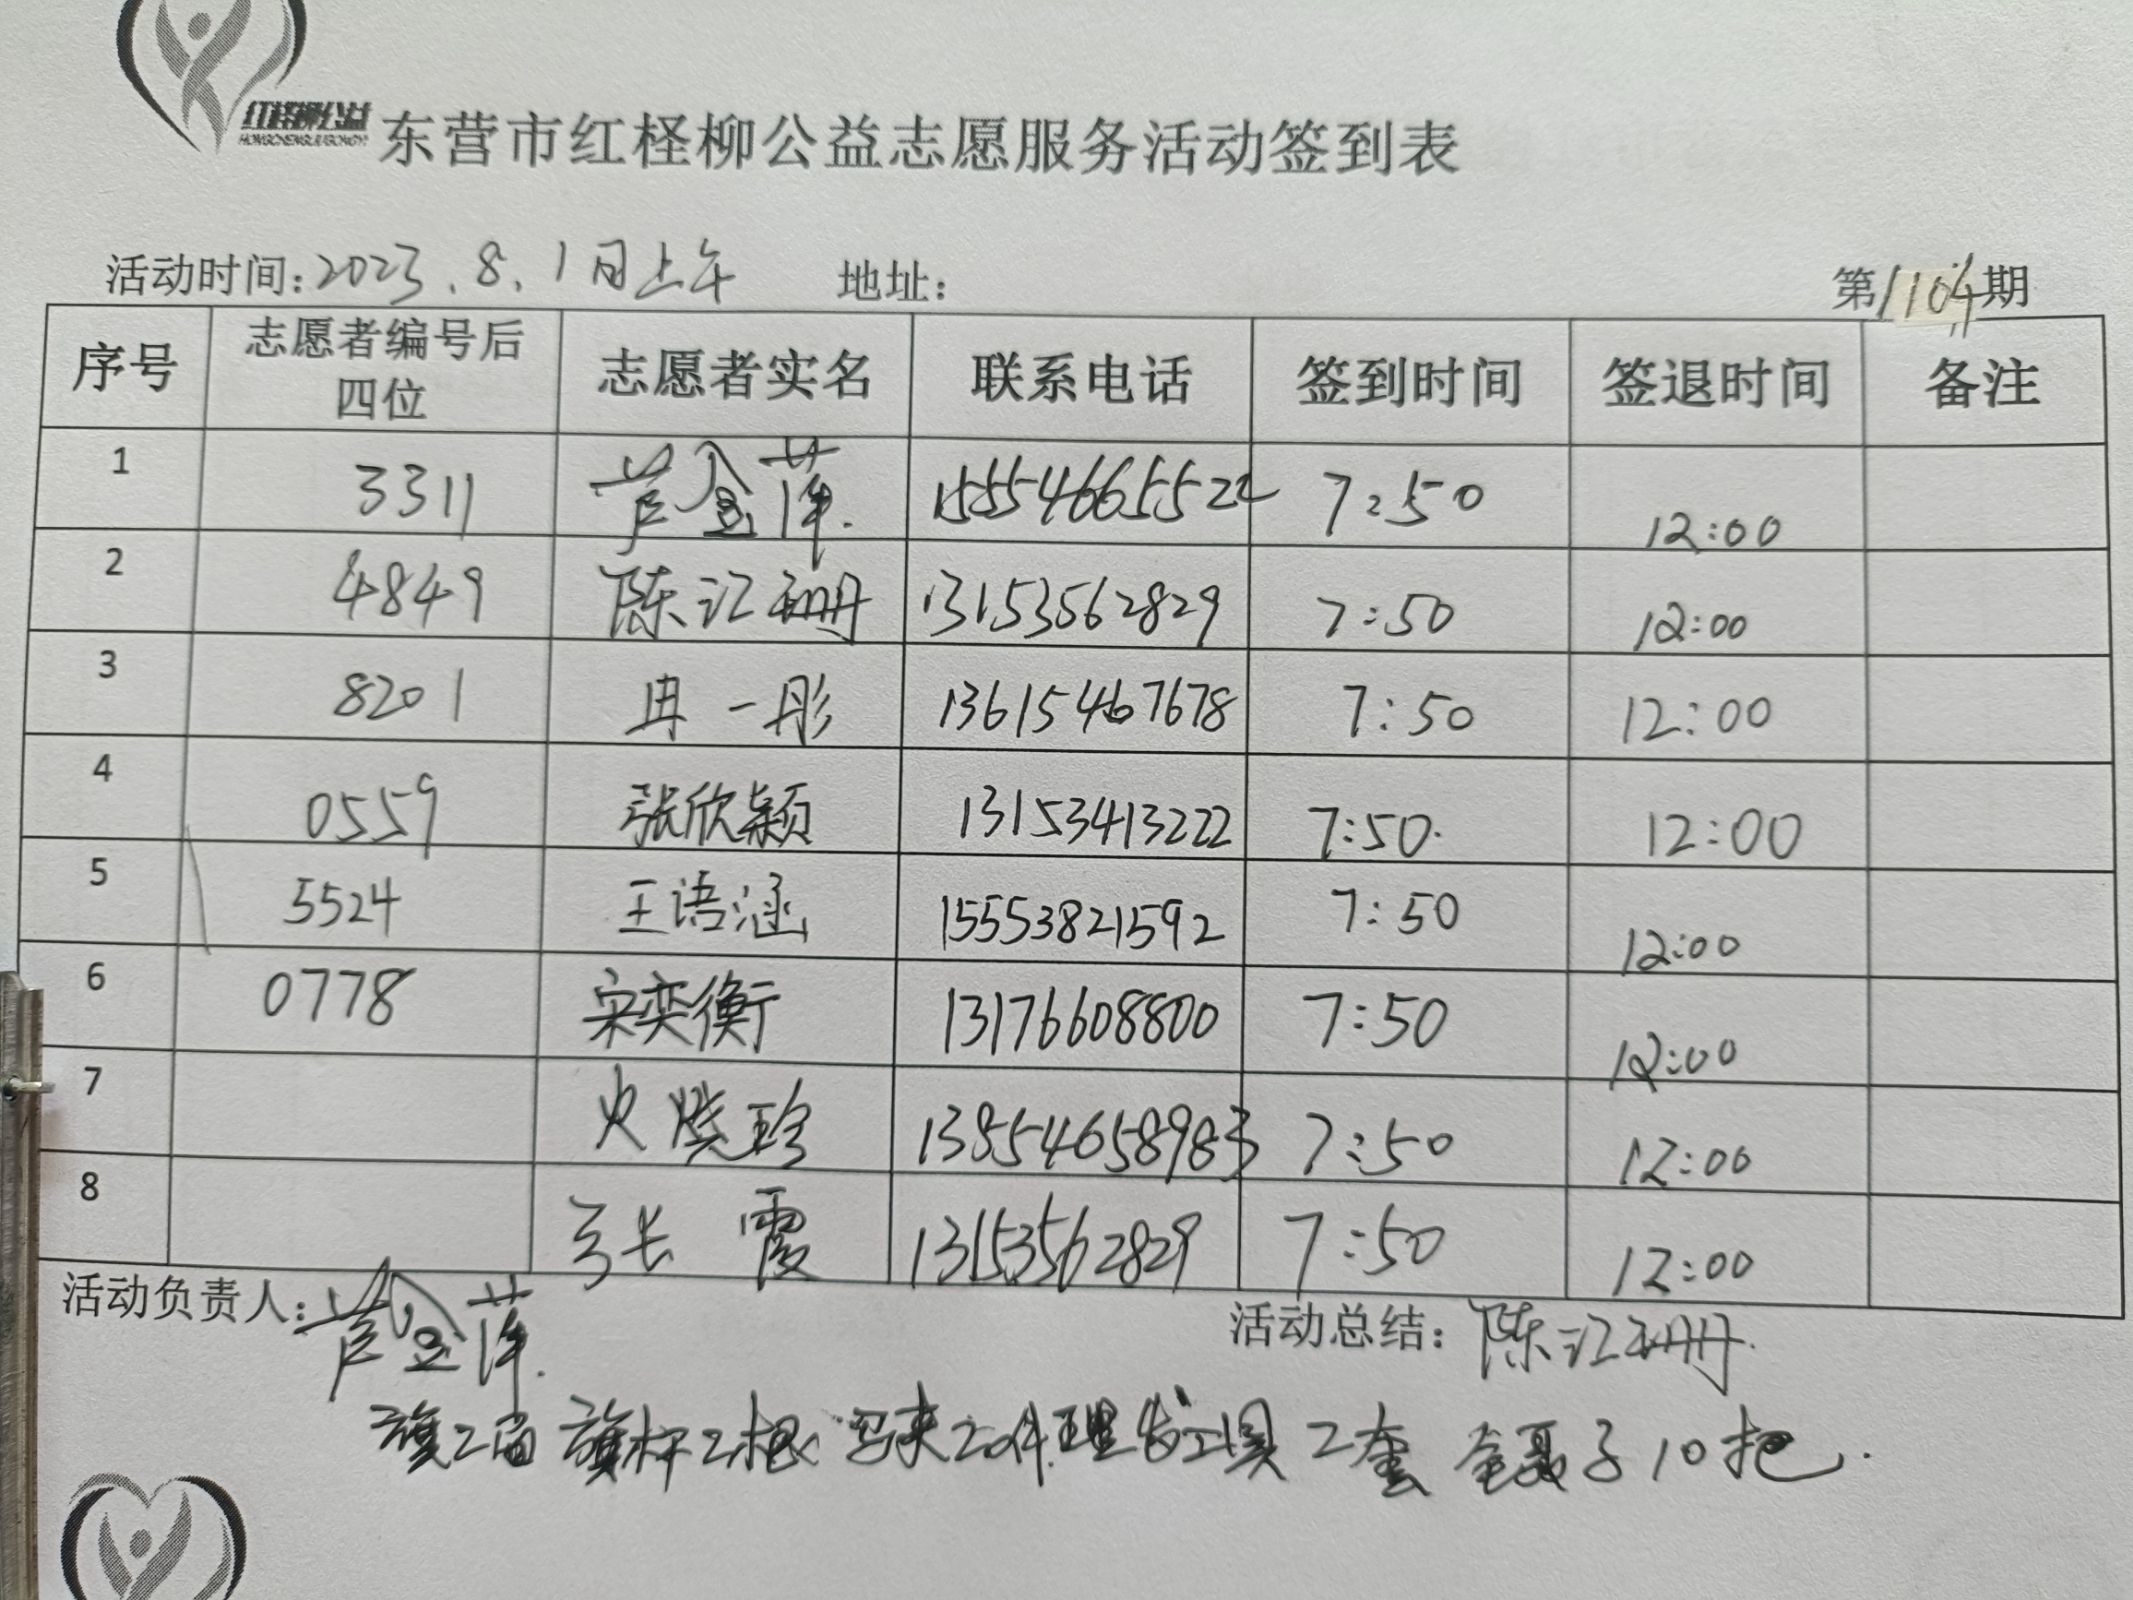 红柽柳公益
HONGCHENGLIUGONGYI
东营市红柽柳公益志愿服务活动签到表
活动时间:2023.8.1日上午 地址: 第1104期
序号 志愿者编号后四位 志愿者实名 联系电话 签到时间 签退时间 备注
1 3311 芦金萍 15554665522 7:50 12:00
2 4849 陈江珊 13153562829 7:50 12:00
3 8201 冉一彤 13615467678 7:50 12:00
4 0559 张欣颖 13153413222 7:50 12:00
5 5524 王语涵 15553821592 7:50 12:00
6 0778 宋奕衡 13176608800 7:50 12:00
7 火晓珍 13854658983 7:50 12:00
8 张霞 13153562829 7:50 12:00
活动负责人:芦金萍 活动总结:陈江珊
旗2面 旗杆2根 马夹20件 理发工具2套 镊子10把.